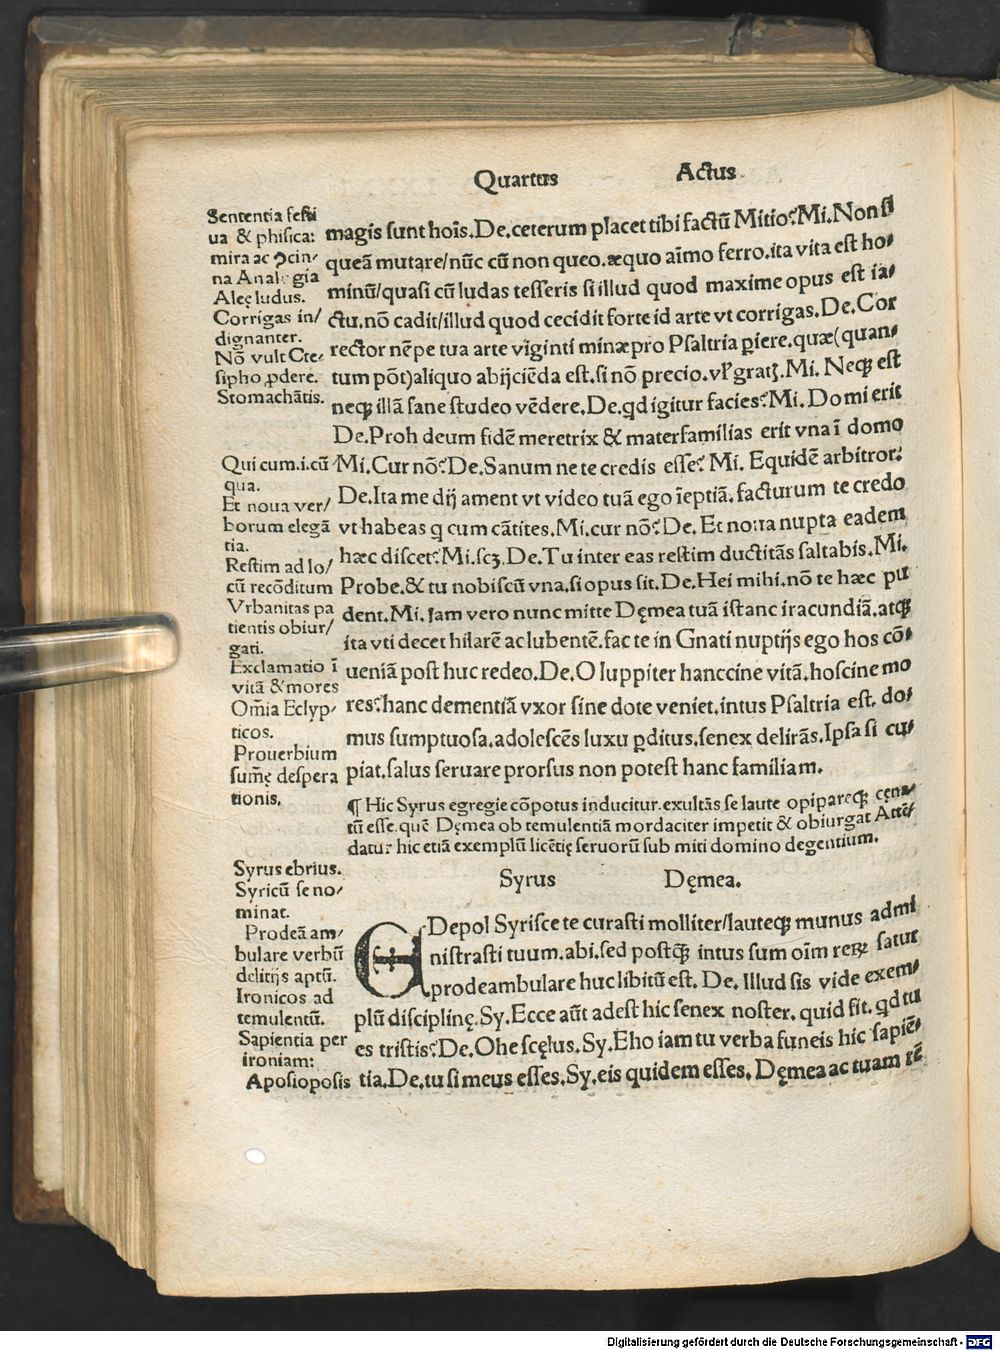 Quartus Actus
Sententia festi
ua & phisica:
mira ac ꝯcin/
na Analogia
Aleę ludus.
Corrigas in/
dignanter.
Nō vult Cte/
sipho ꝓdere.
Stomachātis.
Qui cum.i.cū
qua.
Et noua ver/
borum elegā
tia.
Restim ad lo/
cū recōditum
Vrbanitas pa
tientis obiur/
gati.
Exclamatio ī
vitā & mores
Om̄ia Eclyp/
ticos.
Prouerbium
sum̄ę despera
tionis.
magis sunt hoīs.De.ceterum placet tibi factū Mitio?Mi.Non si
queā mutare/nūc cū non queo.æquo aīmo ferro.ita vita est ho/
minū/quasi cū ludas tesseris si illud quod maxime opus est ia/
ctu.nō cadit/illud quod cecidit forte id arte vt corrigas.De.Cor
rector nēpe tua arte viginti minæ pro Psaltria ꝑiere.quæ(quan/
tum pōt)aliquo abijciēda est.si nō precio.vl̕ gratꝭ.Mi. Neqꝫ est
neqꝫ illā sane studeo vēdere.De.qd igitur facies?Mi.Domi erit
De.Proh deum fidē meretrix & materfamilias erit vna ī domo
Mi.Cur nō?De.Sanum ne te credis esse? Mi. Equidē arbitror.
De.Ita me dij ament vt video tuā ego īeptiā.facturum te credo
vt habeas q cum cātites.Mi.cur nō?De. Et noua nupta eadem
hæc discet?Mi.scꝫ.De.Tu inter eas restim ductitās saltabis.Mi.
Probe.& tu nobiscū vna.si opus sit.De.Hei mihi.nō te hæc pu
dent.Mi.Iam vero nunc mitte Dęmea tuā istanc iracundiā.atqꝫ
ita vti decet hilarē ac lubentē.fac te in Gnati nuptijs ego hos cō/
ueniā post huc redeo.De.O Iuppiter hanccine vitā.hoscine mo
res?hanc dementiā vxor sine dote veniet.intus Psaltria est. do/
mus sumptuosa.adolescēs luxu ꝑditus.senex delirās.Ipsa si cu/
piat.salus seruare prorsus non potest hanc familiam.
¶ Hic Syrus egregie cōpotus inducitur.exultās se laute opipareqꝫ cęna/
tū esse.quē Dęmea ob temulentiā mordaciter impetit & obiurgat Attē/
datur hic etiā exemplū licētię seruorū sub miti domino degentium.
Syrus Dęmea.
Syrus ebrius.
Syricū se no/
minat.
Prodeā am/
bulare verbū
delitijs aptū.
Ironicos ad
temulentū.
Sapientia per
ironiam:
Aposioposis
EDepol Syrisce te curasti molliter/lauteqꝫ munus admi
nistrasti tuum.abi.sed postqꝫ intus sum oīm reꝝ satur
prodeambulare huc libitū est. De. Illud sis vide exem/
plū disciplinę.Sy.Ecce aūt adest hic senex noster. quid fit. qd tu
es tristis?De.Ohe scęlus.Sy.Eho iam tu verba funeis hic sapiē/
tia.De.tu si meus esses.Sy.eis quidem esses. Dęmea ac tuam rē
Digitalisierung gefördert durch die Deutsche Forschungsgemeinschaft - DFG